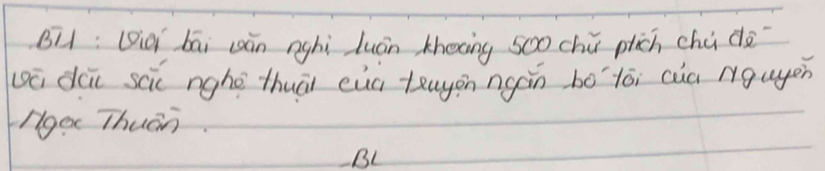 BÌ1 : Viết bài văn nghị luận khoảng 500 chữ ptích chủ đề
và đặc sắc nghệ thuật của truyện ngắn bố tôi của Nguyễn
Ngọc Thuần.
BL